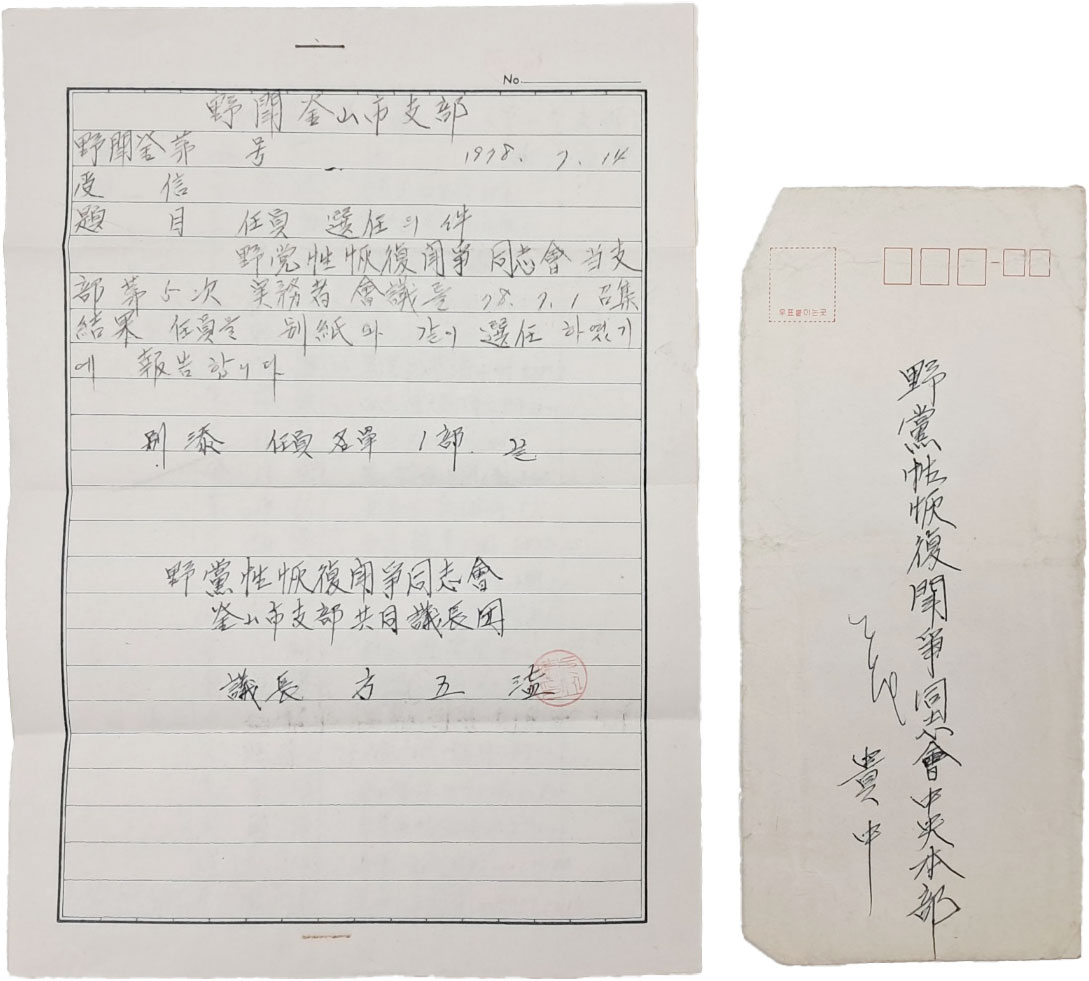 No
野閗釜山市支部
野閗釜苐 号 1978. 7. 14
受 信
題 目 任員 選任의 件
野党性恢復閗爭 同志會 当支
部 苐5次 実務者 會議를 78. 7. 1 召集
結果 任員을 別紙와 같이 選任 하였기
에 報告합니다
別添 任員名單 1部. 끝
野黨性恢復閗爭同志會
釜山市支部共同議長団
議長 方 五
우표붙이는곳
野黨性恢復閗爭同志會中央本部
貴中